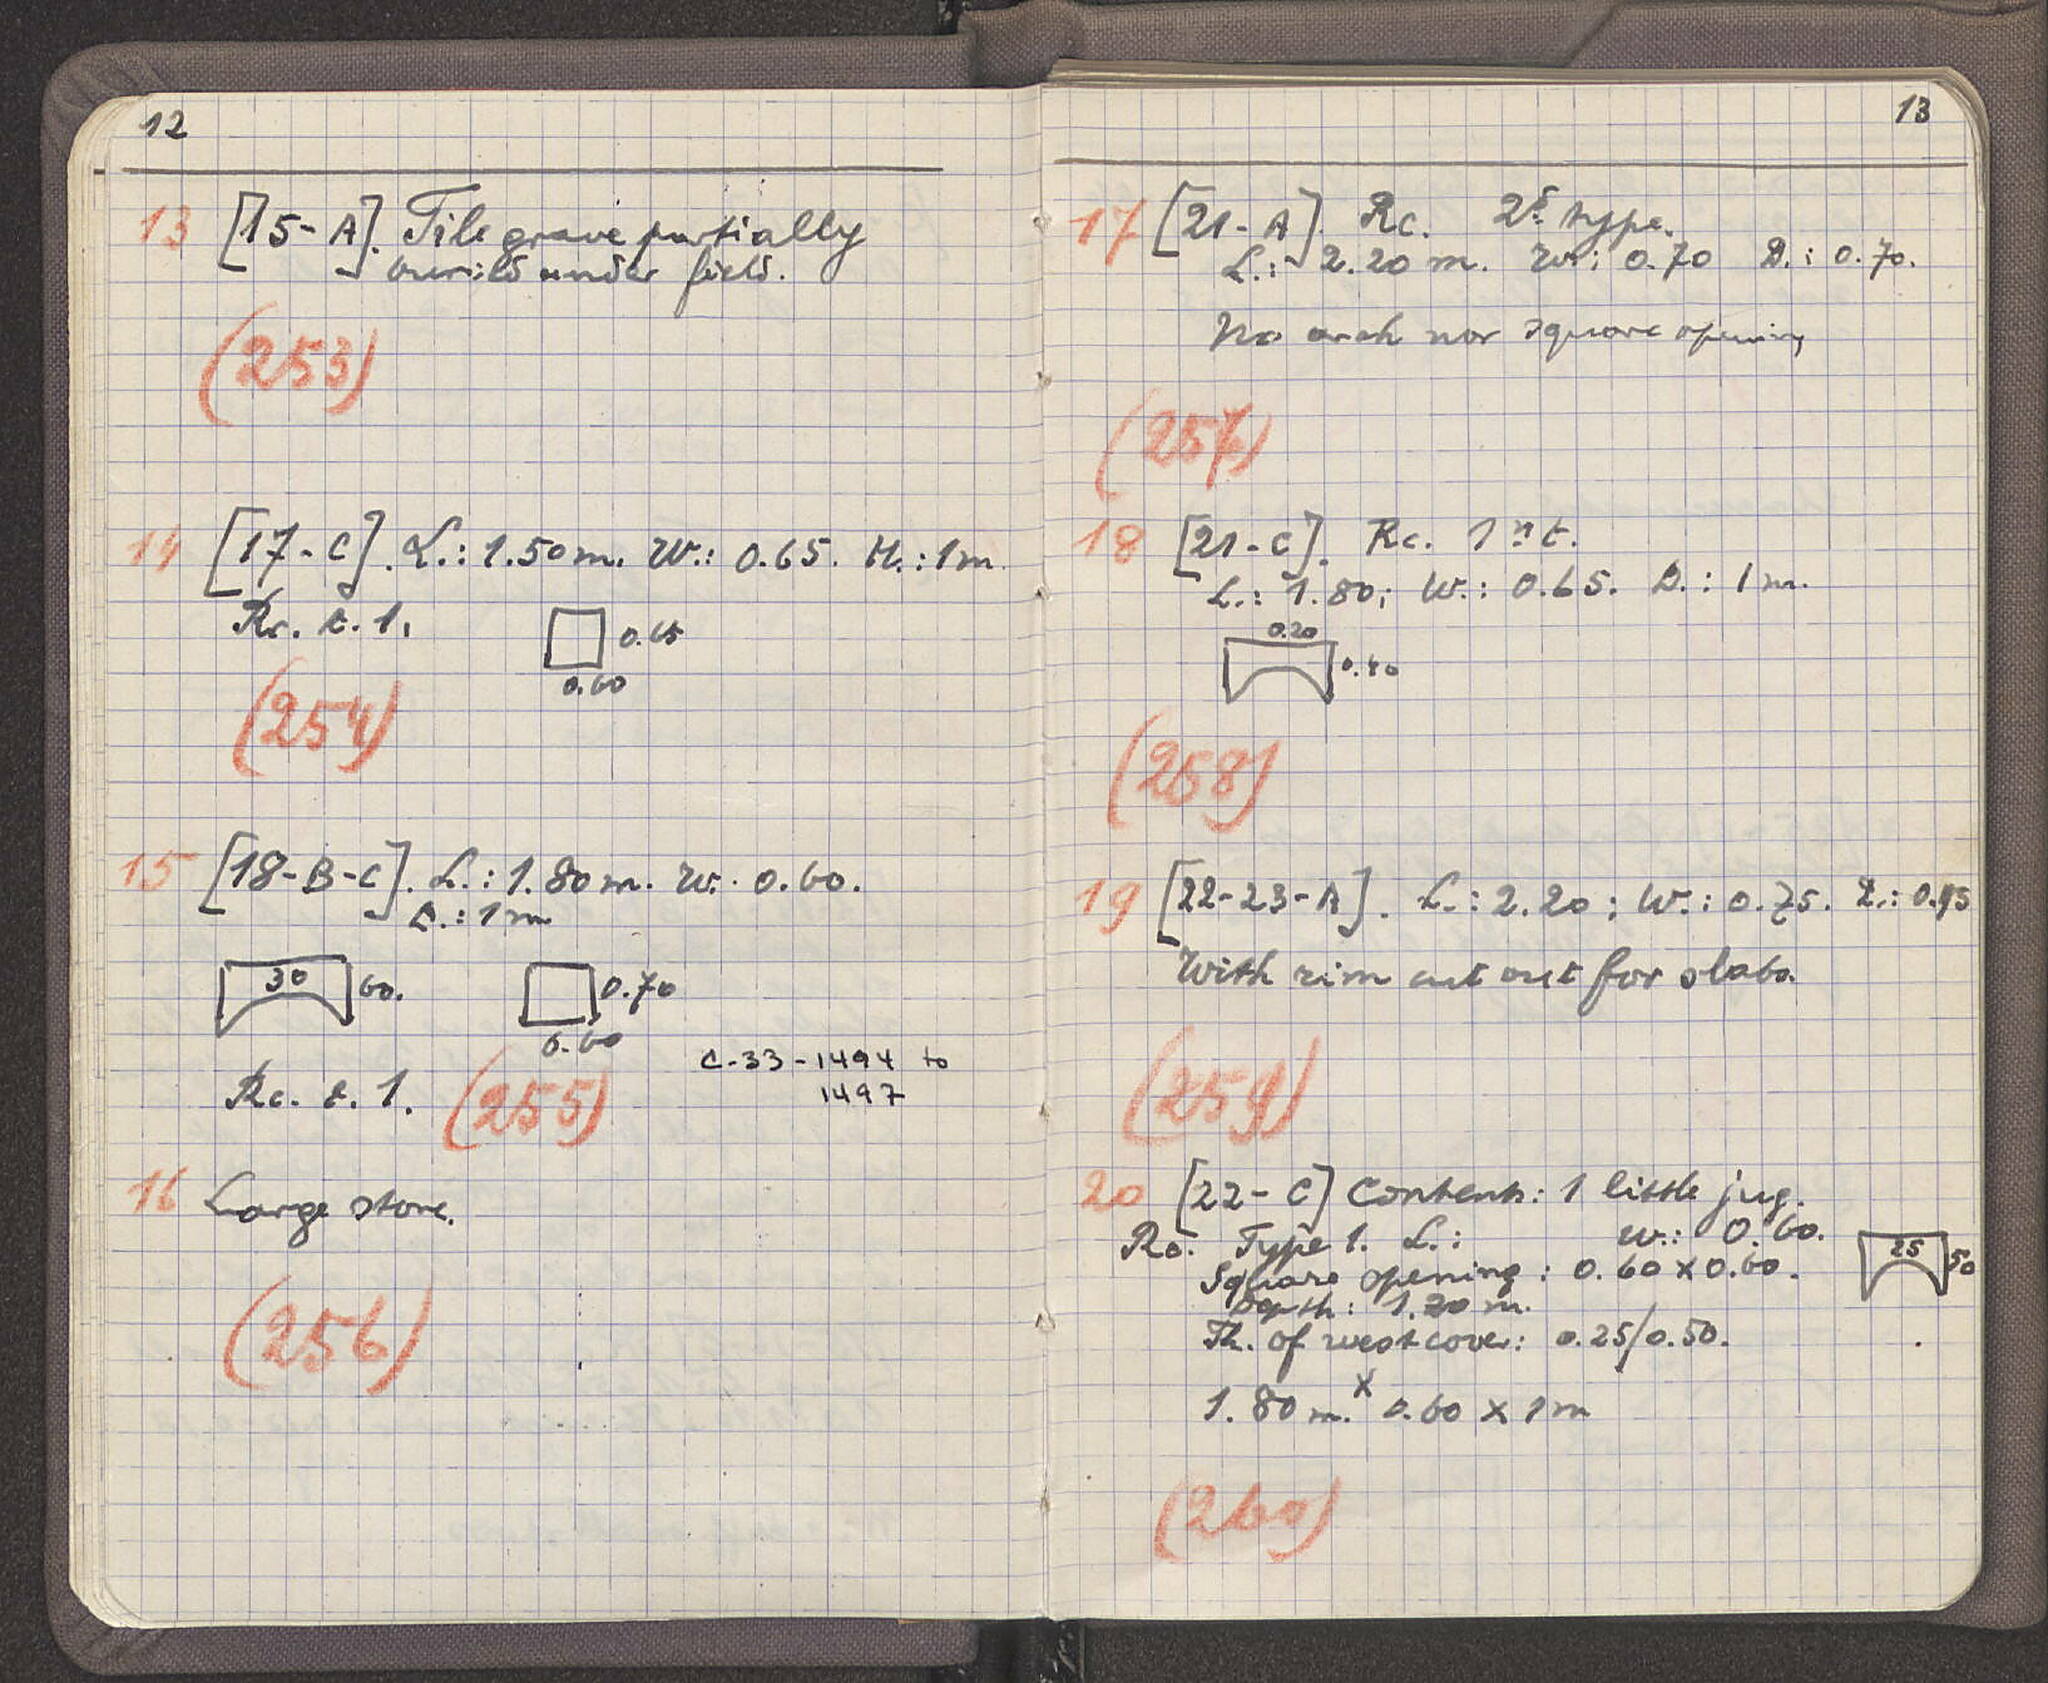 12
13 [15-A]. Tile grave partially
buried under field.
(253)
14 [17-C]. L.: 1.50 m. W.: 0.65. H.: 1 m.
Rc. t. 1.
0.65
0.60
(254)
15 [18-B-C]. L.: 1.80 m. W. 0.60.
D.: 1 m
30 60.
0.70
0.60
C-33-1494 to
1497
Rc. t. 1. (255)
16 Large stone.
(256)
13
17 [21-A]. Rc. 2d type.
L.: 2.20 m. W.: 0.70 D.: 0.70.
No arch nor square opening
(257)
18 [21-C]. Rc. 1st t.
L.: 1.80; W.: 0.65. D.: 1 m.
0.20
0.40
(258)
19 [22-23-A]. L.: 2.20; W.: 0.75. D.:
With rim cut out for slabs.
(259)
20 [22-C] Contents: 1 little jug.
Rc. Type 1. L.: W.: 0.60.
25 50
Square opening: 0.60 x 0.60.
Depth: 1.20 m.
Th. of west cover: 0.25/0.50.
1.80 m. x 0.60 x 1 m
(260)